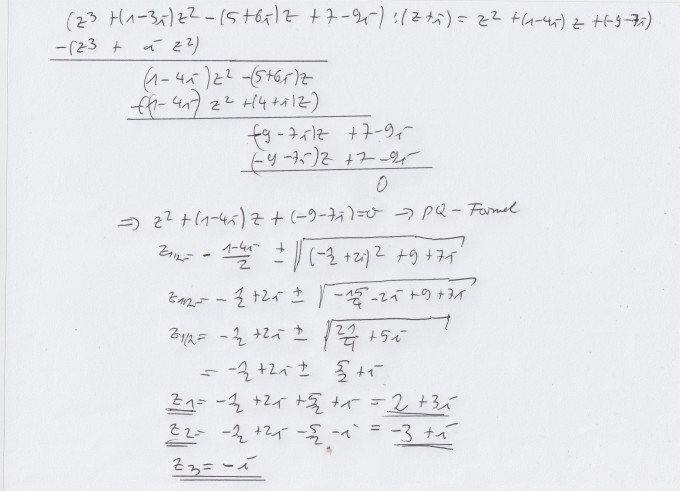 (z³ + (1-3i)z² - (5+6i)z + 7-9i) : (z+i) = z² + (1-4i)z + (-9-7i)
-(z³ + i z²)
(1-4i)z² - (5+6i)z
-((1-4i)z² + (4+i)z)
(-9-7i)z + 7-9i
(-9-7i)z + 7-9i
0
⇒ z² + (1-4i)z + (-9-7i) = 0 → PQ-Formel
z₁/₂ = - (1-4i)/2 ± √((-1/2 + 2i)² + 9 + 7i)
z₁/₂ = -1/2 + 2i ± √(-15/4 - 2i + 9 + 7i)
z₁/₂ = -1/2 + 2i ± √(21/4 + 5i)
= -1/2 + 2i ± 5/2 + i
z1 = -1/2 + 2i + 5/2 + i = 2 + 3i
z2 = -1/2 + 2i - 5/2 - i = -3 + i
z3 = -i